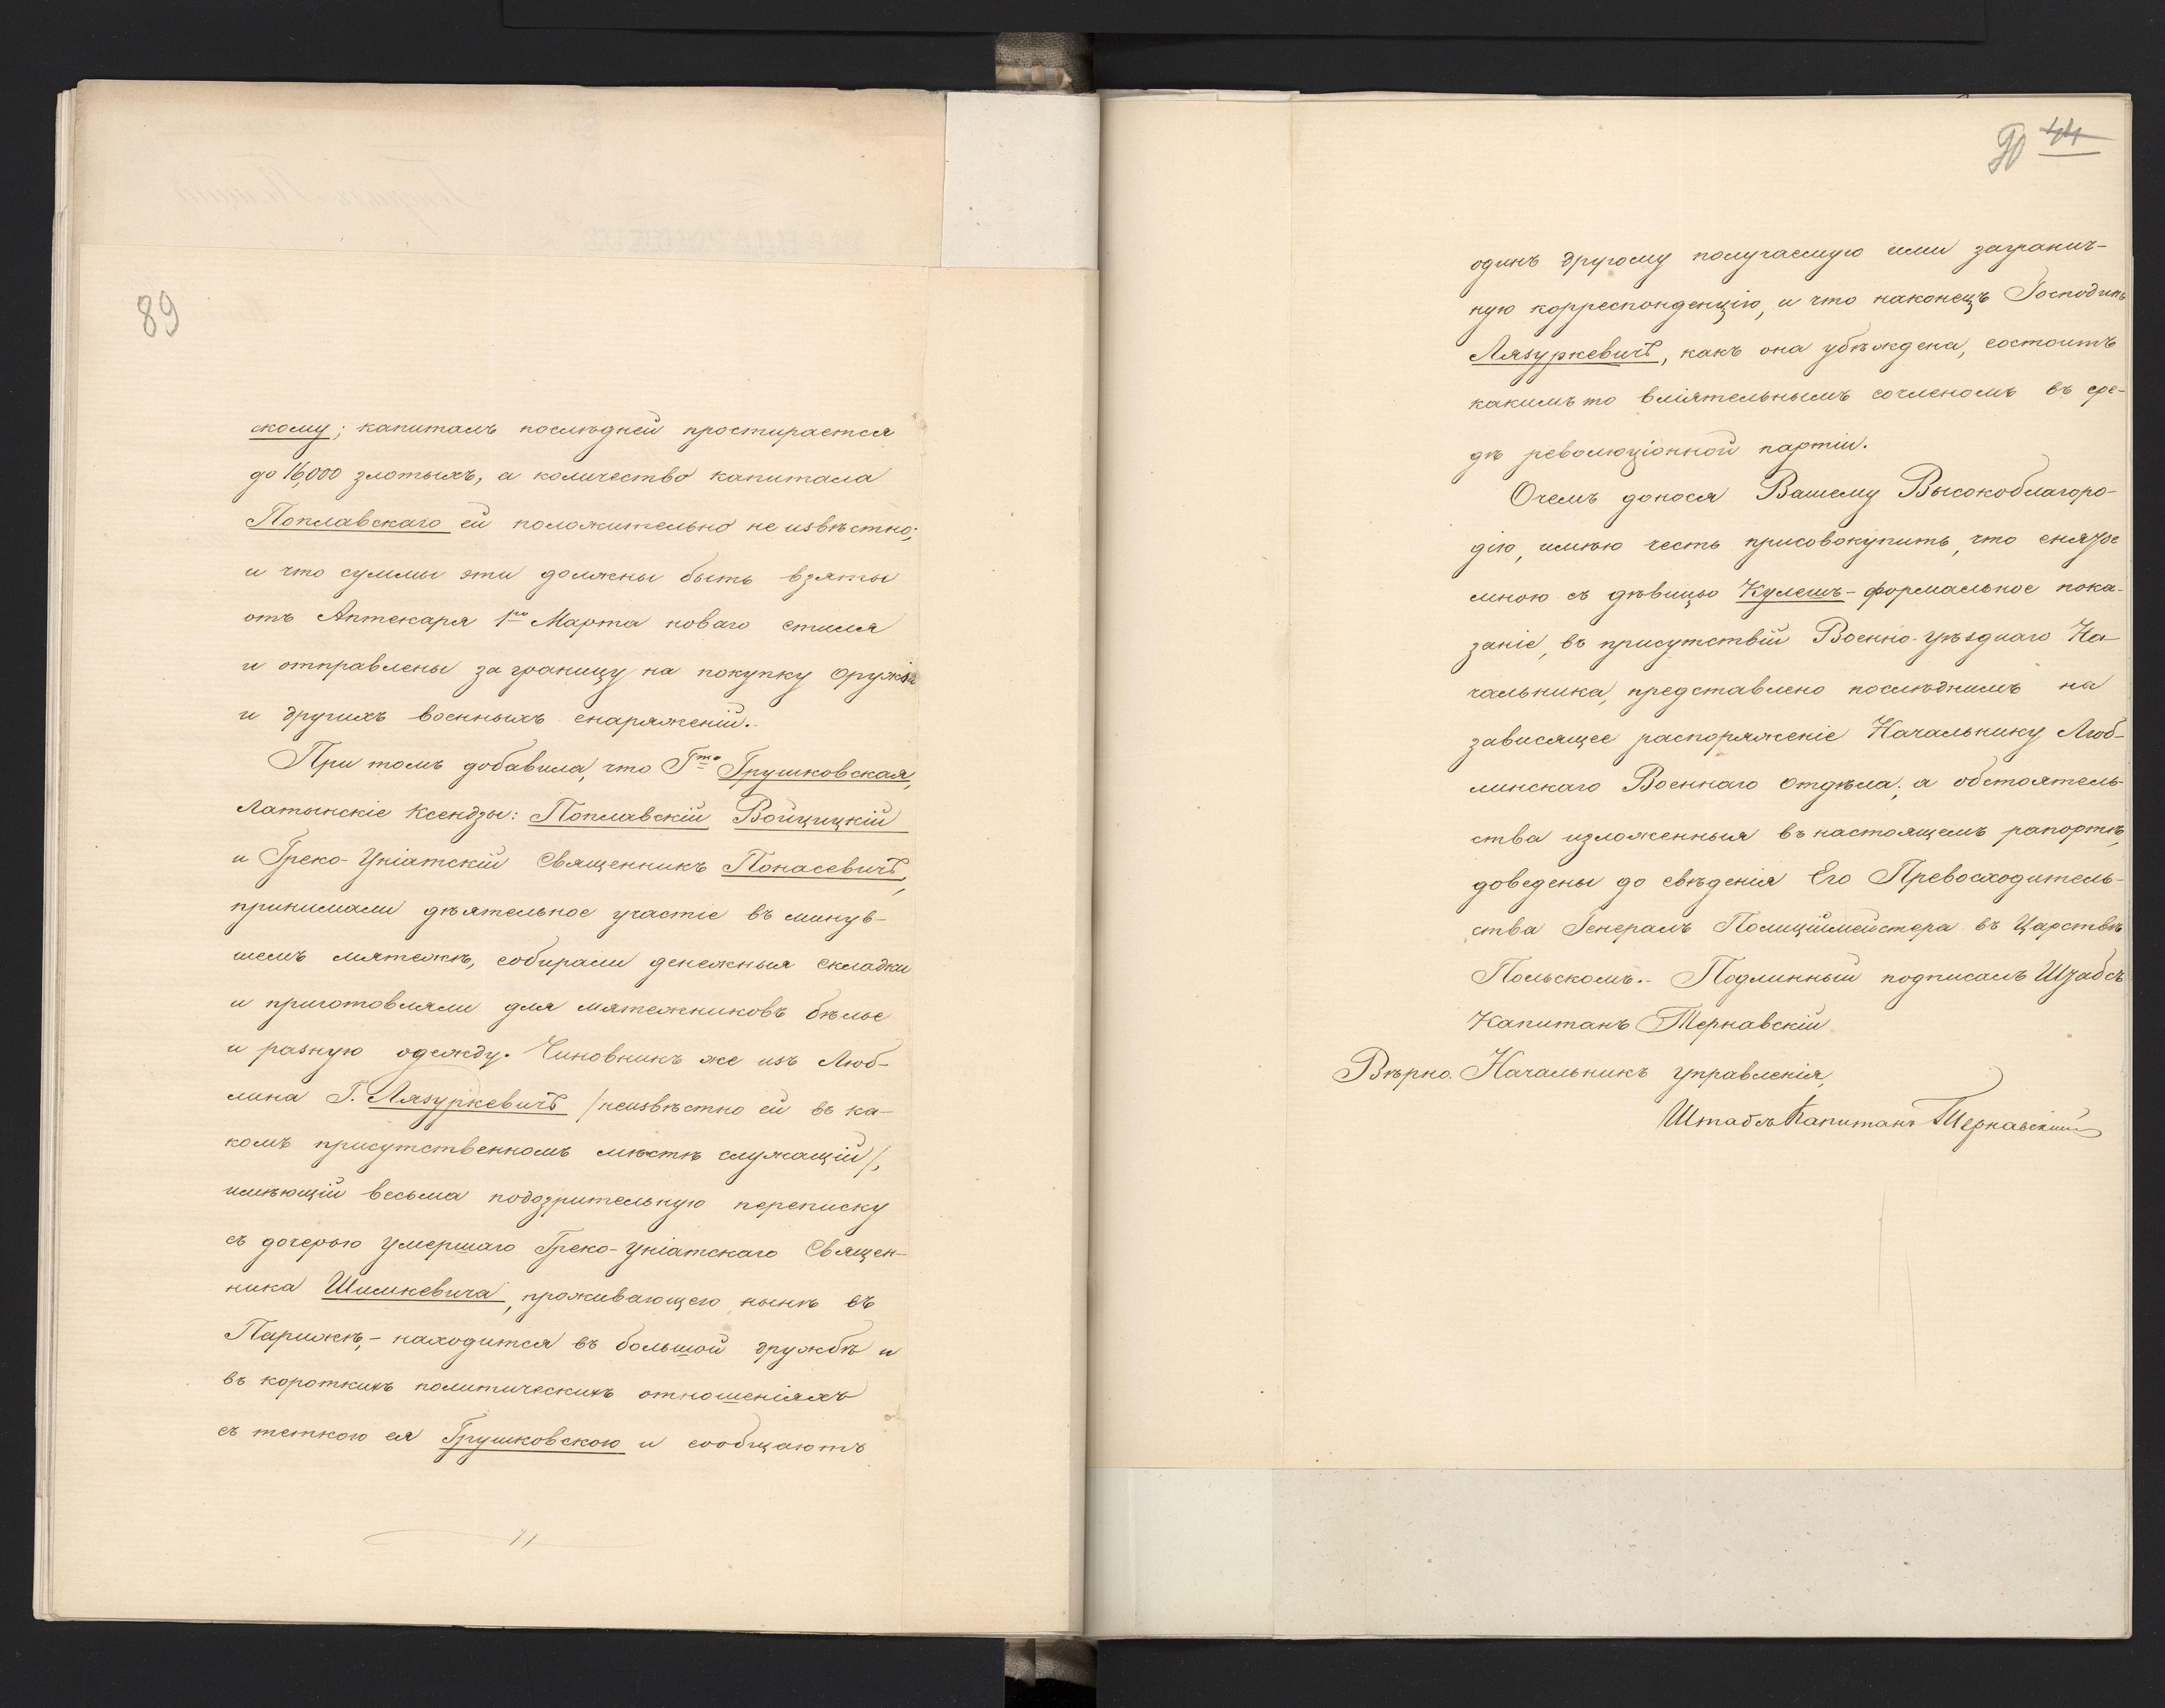 89
скому; капиталъ послѣдней простирается
до 16,000 злотыхъ, а количество капитала
Поплавскаго ей положительно не извѣстно;
и что суммы эти должны быть взяты
отъ Аптекаря 1го Марта новаго стиля
и отправлены за границу на покупку оружія
и другихъ военныхъ снаряженій.
При томъ добавила, что Гжа Грушковская,
Латынскіе Ксендзы: Поплавскій Войцицкій
и Греко-Уніатскій Священникъ Понасевичъ,
принимали дѣятельное участіе въ минув-
шемъ мятежѣ, собирали денежныя складки
и приготовляли для мятежниковъ бѣлье
и разную одежду. Чиновникъ же изъ Люб-
лина Г. Лязуркевичъ /неизвѣстно ей въ ка-
комъ присутственномъ мѣстѣ служащій/,
имѣющій весьма подозрительную переписку
съ дочерью умершаго Греко-Уніатскаго Священ-
ника Шимкевича, проживающего нынѣ въ
Парижѣ,- находится въ большой дружбѣ и
въ короткихъ политическихъ отношеніяхъ
съ теткою ея Грушковскою и сообщаютъ
90 44
одинъ другому получаемую ими загранич-
ную корреспонденцію, и что наконецъ Господинъ
Лязуркевичъ, какъ она убѣждена, состоитъ
какимъ то вліятельнымъ сочленомъ въ сре-
дѣ революціонной партіи.
Очемъ донося Вашему Высокоблагоро-
дію, имѣю честь присовокупить, что снятое
мною съ дѣвицы Кулешъ- формальное пока-
заніе, въ присутствіи Военно-уѣзднаго На-
чальника, представлено послѣднимъ на
зависящее распоряженіе Начальнику Люб-
линскаго Военнаго отдѣла; а обстоятель-
ства изложенныя въ настоящемъ рапортѣ,
доведены до свѣденія Его Превосходитель-
ства Генералъ Полиціймейстера въ Царствѣ
Польскомъ.- Подлинный подписалъ Штабсъ
Капитанъ Тернавскій
Вѣрно. Начальникъ управленія,
Штабсъ Капитанъ Тернавскій